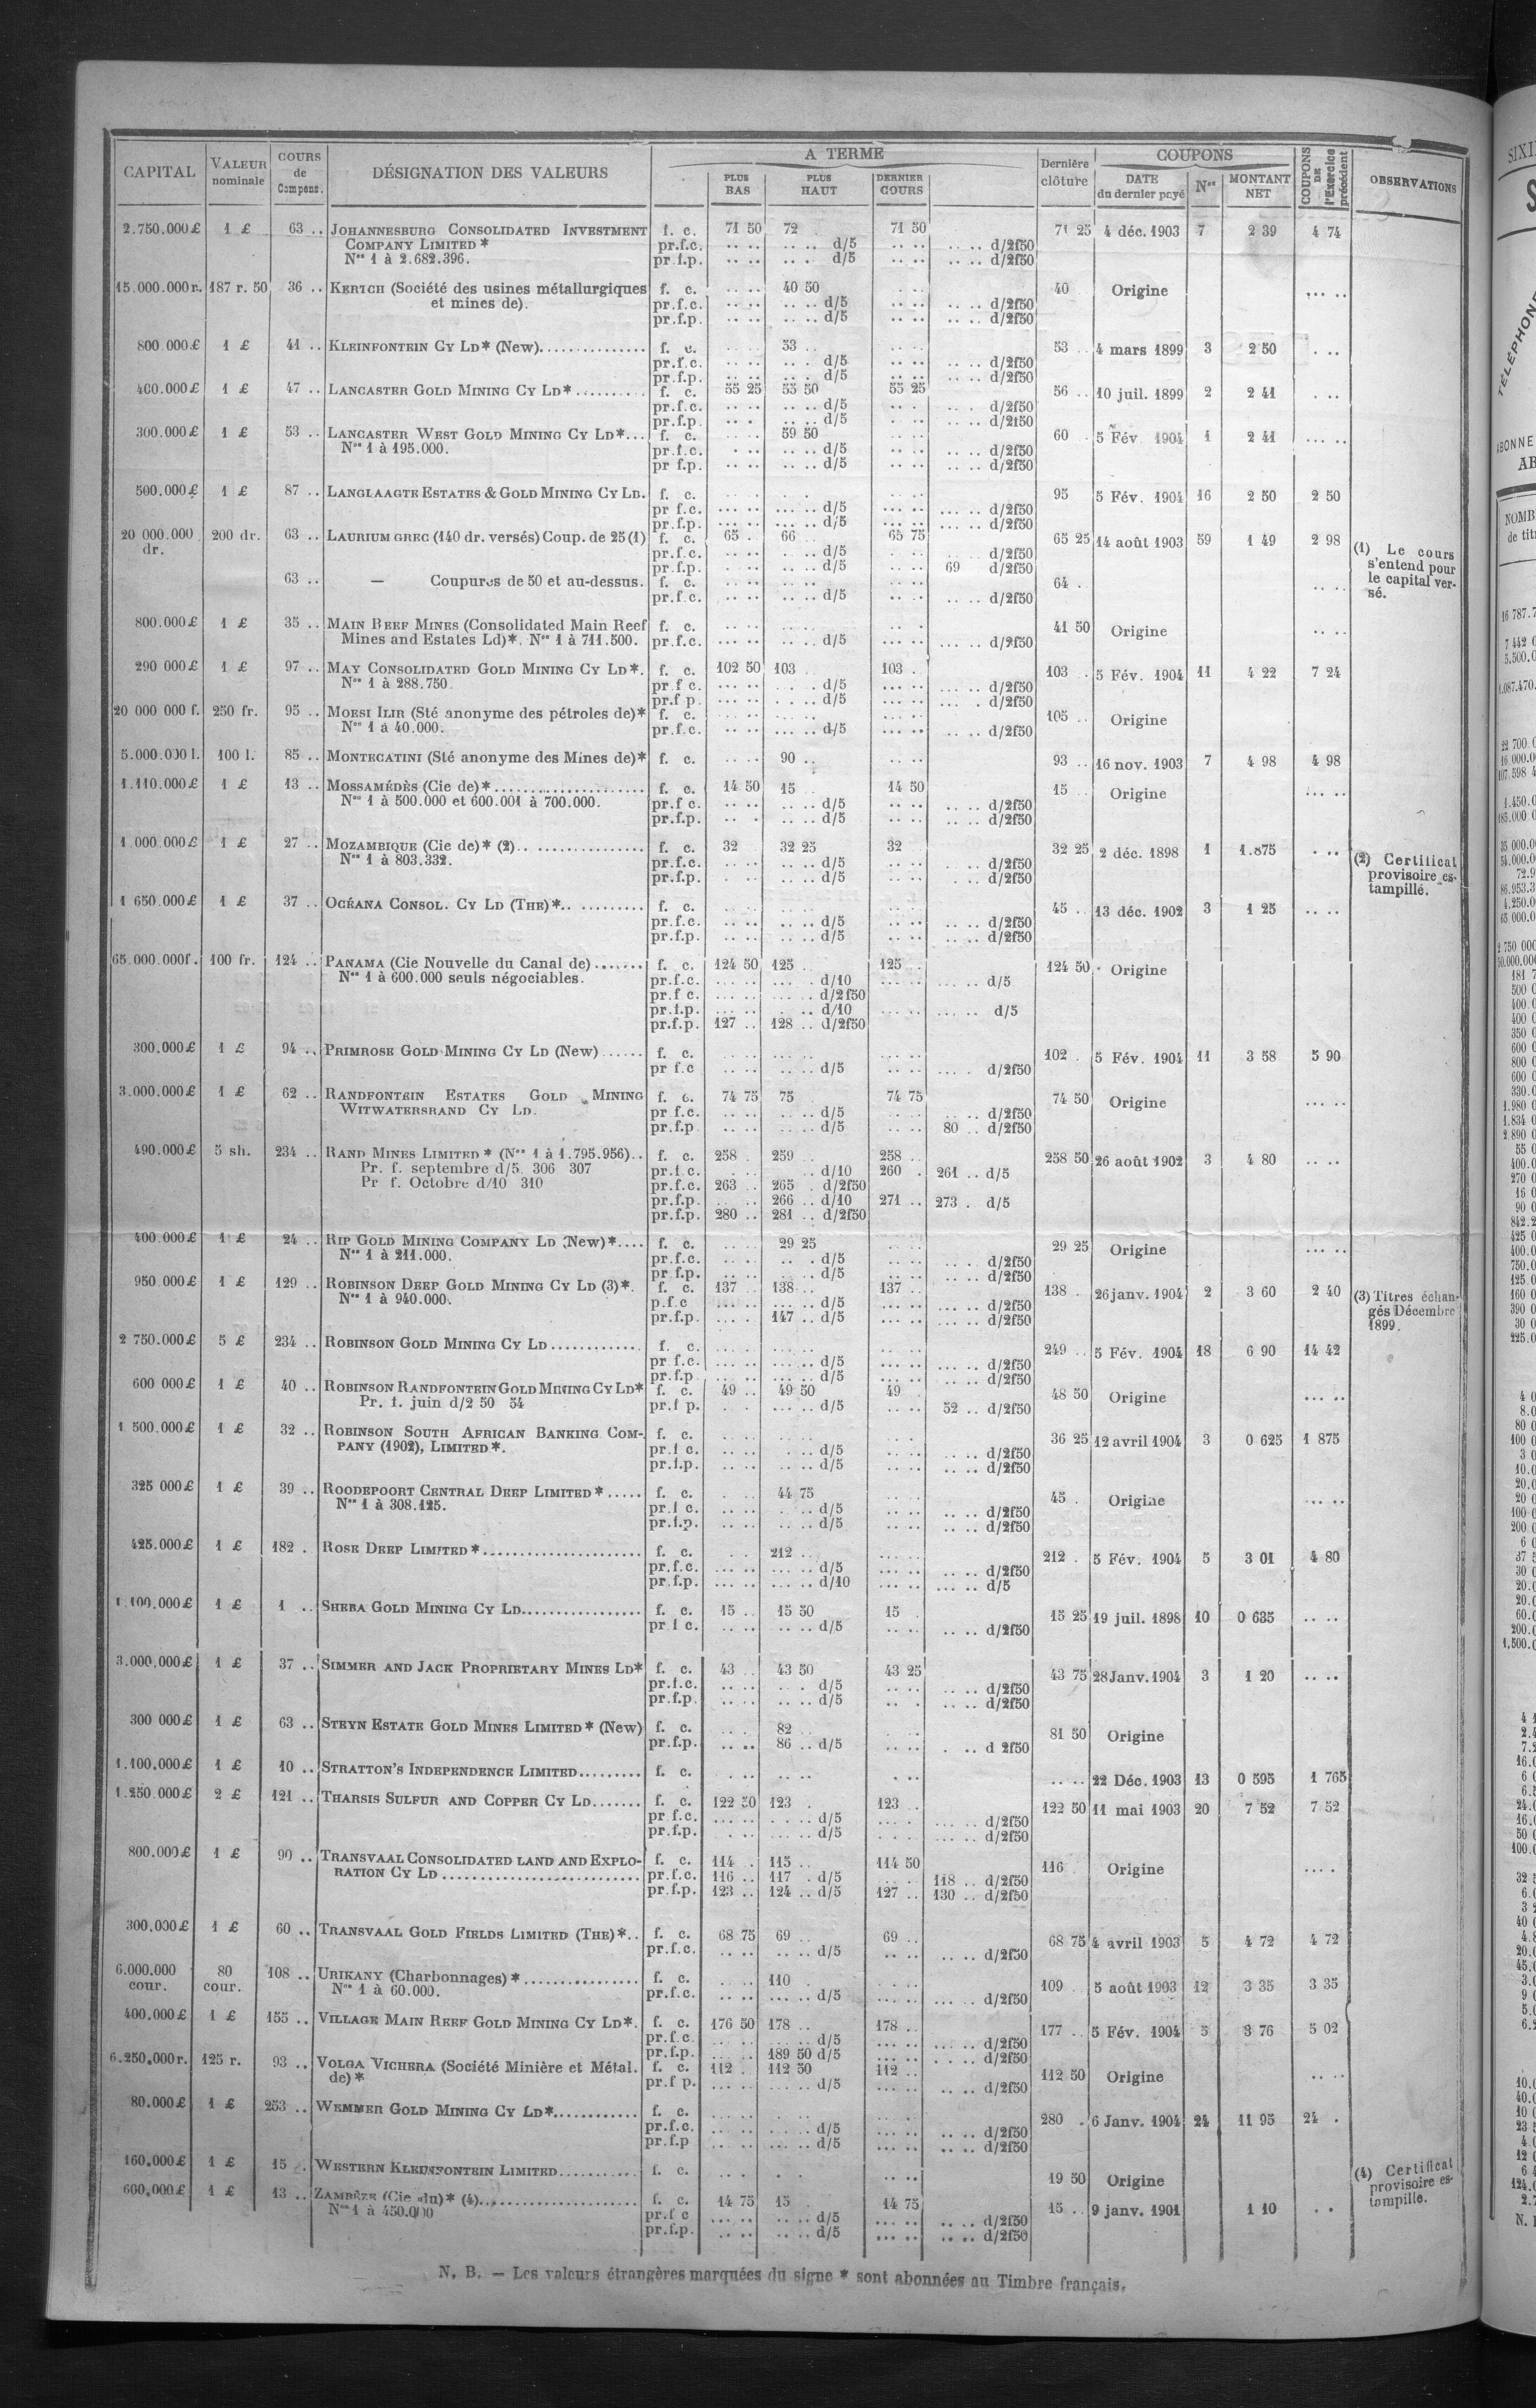 CAPITAL | VALEUR nominale | COURS de Compens. | DÉSIGNATION DES VALEURS | A TERME | PLUS BAS | PLUS HAUT | DERNIER COURS | Dernière clôture | COUPONS | DATE du dernier payé | Nos | MONTANT NET | COUPONS DE l'Exercice précédent | OBSERVATIONS
2.750.000£ 1 £ 63 .. JOHANNESBURG CONSOLIDATED INVESTMENT f. c. 71 50 72 71 50 71 25 4 déc. 1903 7 2 39 4 74
COMPANY LIMITED * pr.f.c. .. .. .. .. d/5 .. .. .. .. d/2f50
Nos 1 à 2.682.396. pr.f.p. .. .. .. . d/5 .. .. .. .. d/2f50
15.000.000r. 187 r. 50 36 .. KERTCH (Société des usines métallurgiques f. c. .. .. 40 50 .. .. 40 Origine ... ..
et mines de). pr.f.c. .. .. .. .. d/5 .. .. .. .. d/2f50
pr.f.p. .. .. .. .. d/5 .. .. .. .. d/2f50
800.000£ 1 £ 41 .. KLEINFONTEIN CY LD* (New).............. f. c. 53 .. 53 .. 4 mars 1899 3 2 50 . ..
pr.f.c. .. .. .. .. d/5 .. .. .. .. d/2f50
pr.f.p. .. .. .. .. d/5 .. .. .. .. d/2f50
400.000£ 1 £ 47 .. LANCASTER GOLD MINING CY LD*......... f. c. 55 25 55 50 55 25 56 .. 10 juil. 1899 2 2 41 . ..
pr.f.c. .. .. .. .. d/5 .. . .. . d/2f50
pr.f.p. .. .. .. .. d/5 .. .. .. .. d/2f50
300.000£ 1 £ 53 .. LANCASTER WEST GOLD MINING CY LD*... f. c. .. .. 59 50 .. .. 60 . 5 Fév 1904 1 2 41 ... ..
Nos 1 à 195.000. pr.f.c. . .. .. .. d/5 .. .. .. .. d/2f50
pr f.p. .. .. .. .. d/5 .. .. .. .. d/2f50
500.000£ 1 £ 87 .. LANGLAAGTE ESTATES & GOLD MINING CY LD. f. c. 95 5 Fév. 1904 16 2 50 2 50
pr f.c. ... .. ... .. d/5 ... .. ... .. d/2f50
pr.f.p. ... .. ... .. d/5 ... .. ... .. d/2f50
20 000.000 dr. 200 dr. 63 .. LAURIUM GREC (140 dr. versés) Coup. de 25 (1) f. c. 65 . 66 .. 65 75 65 25 14 août 1903 59 1 49 2 98 (1) Le cours
pr.f.c. .. .. .. .. d/5 .. .. .. .. d/2f50 s'entend pour
pr.f.p. .. .. .. .. d/5 .. .. 69 d/2f50 le capital ver-
63 .. — Coupures de 50 et au-dessus. f. c. 64 . .. .. sé.
pr.f.c. .. .. .. .. d/5 .. .. .. .. d/2f50
800.000£ 1 £ 35 .. MAIN REEF MINES (Consolidated Main Reef f. c. 41 50 Origine .. ..
Mines and Estates Ld)*. Nos 1 à 711.500. pr.f.c. ... .. ... .. d/5 ... .. ... .. d/2f50
290 000£ 1 £ 97 .. MAY CONSOLIDATED GOLD MINING CY LD*. f. c. 102 50 103 .. 103 . 103 .. 5 Fév. 1904 11 4 22 7 24
Nos 1 à 288.750. pr f c. ... .. .. d/5 ... .. ... .. d/2f50
pr.f p. ... .. ... .. d/5 ... .. ... . d/2f50
20 000 000 f. 250 fr. 95 .. MOESI ILIR (Sté anonyme des pétroles de)* f. c. 105 .. Origine
Nos 1 à 40.000. pr.f.c. ... .. ... .. d/5 ... .. ... .. d/2f50
5.000.000 l. 100 l. 85 .. MONTECATINI (Sté anonyme des Mines de)* f. c. .. .. 90 .. .. .. 93 .. 16 nov. 1903 7 4 98 4 98
1.110.000£ 1 £ 13 .. MOSSAMÉDÈS (Cie de)*..................... f. c. 14 50 15 14 50 15 .. Origine ... ..
Nos 1 à 500.000 et 600.001 à 700.000. pr.f c. .. .. .. .. d/5 .. .. .. .. d/2f50
pr.f.p. .. . .. .. d/5 .. .. .. .. d/2f50
1.000.000£ 1 £ 27 .. MOZAMBIQUE (Cie de)* (2).. ............... f. c. 32 32 25 32 32 25 2 déc. 1898 1 1.875 . .. (2) Certificat
Nos 1 à 803.332. pr.f.c. .. .. .. .. d/5 .. .. .. .. d/2f50 provisoire es-
pr.f.p. . .. .. .. d/5 .. .. . .. d/2f50 tampillé.
1 650.000£ 1 £ 37 .. OCÉANA CONSOL. CY LD (THE)*.. ......... f. c. 45 .. 13 déc. 1902 3 1 25 .. ..
pr.f.c. .. .. .. .. d/5 .. .. .. .. d/2f50
pr.f.p. .. .. .. .. d/5 .. .. .. .. d/2f50
65.000.000f. 100 fr. 124 .. PANAMA (Cie Nouvelle du Canal de)....... f. c. 124 50 125 .. 125 .. 124 50 Origine
Nos 1 à 600.000 seuls négociables. pr.f.c. ... .. ... . d/10 ... .. ... .. d/5
pr.f c. ... .. ... .. d/2f50
pr.f.p. ... .. . .. d/10 ... .. ... .. d/5
pr.f.p. 127 .. 128 .. d/2f50
300.000£ 1 £ 94 .. PRIMROSE GOLD MINING CY LD (New)...... f. c. 102 . 5 Fév. 1904 11 3 58 5 90
pr f.c .. .. .. .. d/5 .. .. ... . d/2f50
3.000.000£ 1 £ 62 .. RANDFONTEIN ESTATES GOLD MINING f. c. 74 75 75 74 75 74 50 Origine ... ..
WITWATERSRAND CY LD. pr f.c. .. .. .. .. d/5 .. .. .. .. d/2f50
pr.f.p .. .. .. .. d/5 .. .. 80 .. d/2f50
490.000£ 5 sh. 234 .. RAND MINES LIMITED * (Nos 1 à 1.795.956).. f. c. 258 . 259 .. 258 .. 258 50 26 août 1902 3 4 80 .. ..
Pr. f. septembre d/5 306 307 pr.f.c. .. .. d/10 260 . 261 .. d/5
Pr f. Octobre d/10 310 pr.f.c. 263 .. 265 . d/2f50
pr.f.p. .. .. 266 .. d/10 271 .. 273 . d/5
pr.f.p. 280 .. 281 .. d/2f50
400.000£ 1 £ 24 .. RIP GOLD MINING COMPANY LD (New)*.... f. c. .. .. 29 25 29 25 Origine ... ..
Nos 1 à 211.000. pr.f.c. .. .. .. . d/5 .. .. .. .. d/2f50
pr f.p. .. .. .. .. d/5 .. .. .. .. d/2f50
950.000£ 1 £ 129 .. ROBINSON DEEP GOLD MINING CY LD (3)*. f. c. 137 .. 138 .. 137 .. 138 . 26 janv. 1904 2 3 60 2 40 (3) Titres échan-
Nos 1 à 940.000. p.f.c ... .. ... .. d/5 ... .. ... .. d/2f50 gés Décembre
pr.f.p. ... .. 147 .. d/5 ... .. ... .. d/2f50 1899.
2 750.000£ 5 £ 234 .. ROBINSON GOLD MINING CY LD............. f. c. 249 .. 5 Fév. 1904 18 6 90 14 42
pr f.c. ... .. ... .. d/5 ... .. ... .. d/2f50
pr.f.p ... .. ... .. d/5 ... .. ... .. d/2f50
600 000£ 1 £ 40 .. ROBINSON RANDFONTEIN GOLD MINING CY LD* f. c. 49 .. 49 50 49 48 50 Origine ... ..
Pr. f. juin d/2 50 54 pr.f p. .. . ... .. d/5 .. .. 52 .. d/2f50
1 500.000£ 1 £ 32 .. ROBINSON SOUTH AFRICAN BANKING COM- f. c. 36 25 12 avril 1904 3 0 625 1 875
PANY (1902), LIMITED *. pr.f c. .. .. .. .. d/5 .. .. .. .. d/2f50
pr.f.p. .. .. .. .. d/5 .. .. .. .. d/2f50
325 000£ 1 £ 39 .. ROODEPOORT CENTRAL DEEP LIMITED *..... f. c. 44 75 45 . Origine ... ..
Nos 1 à 308.125. pr.f c. .. .. . .. d/5 .. .. .. .. d/2f50
pr.f.p. .. .. .. .. d/5 .. .. .. .. d/2f50
425.000£ 1 £ 182 . ROSE DEEP LIMITED *....................... f. c. 212 .. 212 . 5 Fév. 1904 5 3 01 4 80
pr.f.c. ... .. ... .. d/5 ... .. ... .. d/2f50
pr.f.p. ... .. ... .. d/10 ... .. ... .. d/5
1.100.000£ 1 £ 1 .. SHEBA GOLD MINING CY LD................. f. c. 15 .. 15 50 15 . 15 25 19 juil. 1898 10 0 635 .. ..
pr f c. .. .. .. .. d/5 .. .. .. .. d/2f50
3.000.000£ 1 £ 37 .. SIMMER AND JACK PROPRIETARY MINES LD* f. c. 43 .. 43 50 43 25 43 75 28 Janv. 1904 3 1 20 .. ..
pr.f.c. .. .. .. . d/5 .. .. .. .. d/2f50
pr.f.p. .. .. .. .. d/5 .. . .. .. d/2f50
300 000£ 1 £ 63 .. STEYN ESTATE GOLD MINES LIMITED * (New) f. c. 82 .. 81 50 Origine
pr.f.p. .. .. 86 .. d/5 .. .. . .. d 2f50
1.100.000£ 1 £ 10 .. STRATTON'S INDEPENDENCE LIMITED......... f. c. .. .. .. .. . .. .. .. 22 Déc. 1903 13 0 595 1 765
1.250.000£ 2 £ 121 .. THARSIS SULFUR AND COPPER CY LD....... f. c. 122 50 123 . 123 .. 122 50 11 mai 1903 20 7 52 7 52
pr.f.c. ... .. . .. d/5 ... . ... .. d/2f50
pr.f.p. . .. ... .. d/5 ... .. d/2f50
800.000£ 1 £ 90 .. TRANSVAAL CONSOLIDATED LAND AND EXPLO- f. c. 114 . 115 .. 114 50 116 Origine ... .
RATION CY LD ............................ pr.f.c. 116 .. 117 . d/5 118 .. d/2f50
pr.f.p. 123 .. 124 .. d/5 127 .. 130 .. d/2f50
300.000£ 1 £ 60 .. TRANSVAAL GOLD FIELDS LIMITED (THE)*.. f. c. 68 75 69 .. 69 .. 68 75 4 avril 1903 5 4 72 4 72
pr.f.c. .. .. .. .. d/5 .. .. .. .. d/2f50
6.000.000 cour. 80 cour. 108 .. URIKANY (Charbonnages) *................. f. c. 110 109 5 août 1903 12 3 35 3 35
Nos 1 à 60.000. pr.f.c. .. .. ... .. d/5 .. .. ... .. d/2f50
400.000£ 1 £ 155 .. VILLAGE MAIN REEF GOLD MINING CY LD*. f. c. 176 50 178 .. 178 .. 177 .. 5 Fév. 1904 5 3 76 5 02
pr.f.c. ... .. d/5 ... .. ... .. d/2f50
pr.f.p. ... .. 189 50 d/5 ... .. ... .. d/2f50
6.250.000r. 125 r. 93 .. VOLGA VICHERA (Société Minière et Métal. f. c. 112 . 112 50 112 .. 112 50 Origine .. ..
de)* pr.f p. ... .. ... .. d/5 ... .. .. .. d/2f50
80.000£ 1 £ 253 .. WEMMER GOLD MINING CY LD*............ f. c. 280 . 6 Janv. 1904 24 11 95 24 .
pr.f.c. ... .. ... .. d/5 ... .. .. .. d/2f50
pr.f.p ... .. ... .. d/5 ... .. .. .. d/2f50
160.000£ 1 £ 15 . WESTERN KLEINFONTEIN LIMITED........... f. c. 19 50 Origine (4) Certificat
600.000£ 1 £ 13 .. ZAMBÈZE (Cie du)* (4)...................... f. c. 14 75 15 .. 14 75 15 .. 9 janv. 1901 1 10 . . provisoire es-
Nos 1 à 450.000 pr.f c ... .. .. .. d/5 ... .. .. .. d/2f50 tampille.
pr.f.p. .. .. .. .. d/5 ... .. .. .. d/2f50
N. B. — Les valeurs étrangères marquées du signe * sont abonnées au Timbre français.
TÉLÉPHONE
NOMB
de tit